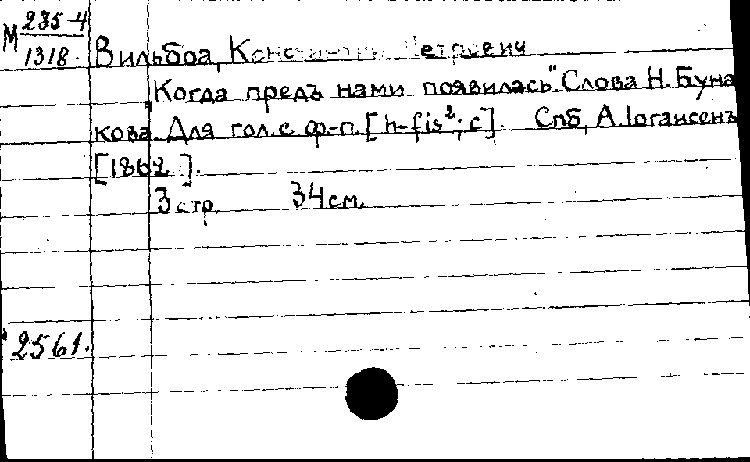 М 235-4
1318. Вильбоа, Константин Петрович
„Когда предъ нами появилась". Слова Н. Буна
кова. Для гол. с ф-п. [h-fis²; c]. Спб, А. Іогансенъ
[1862].
3 стр. 34 см.
2561.